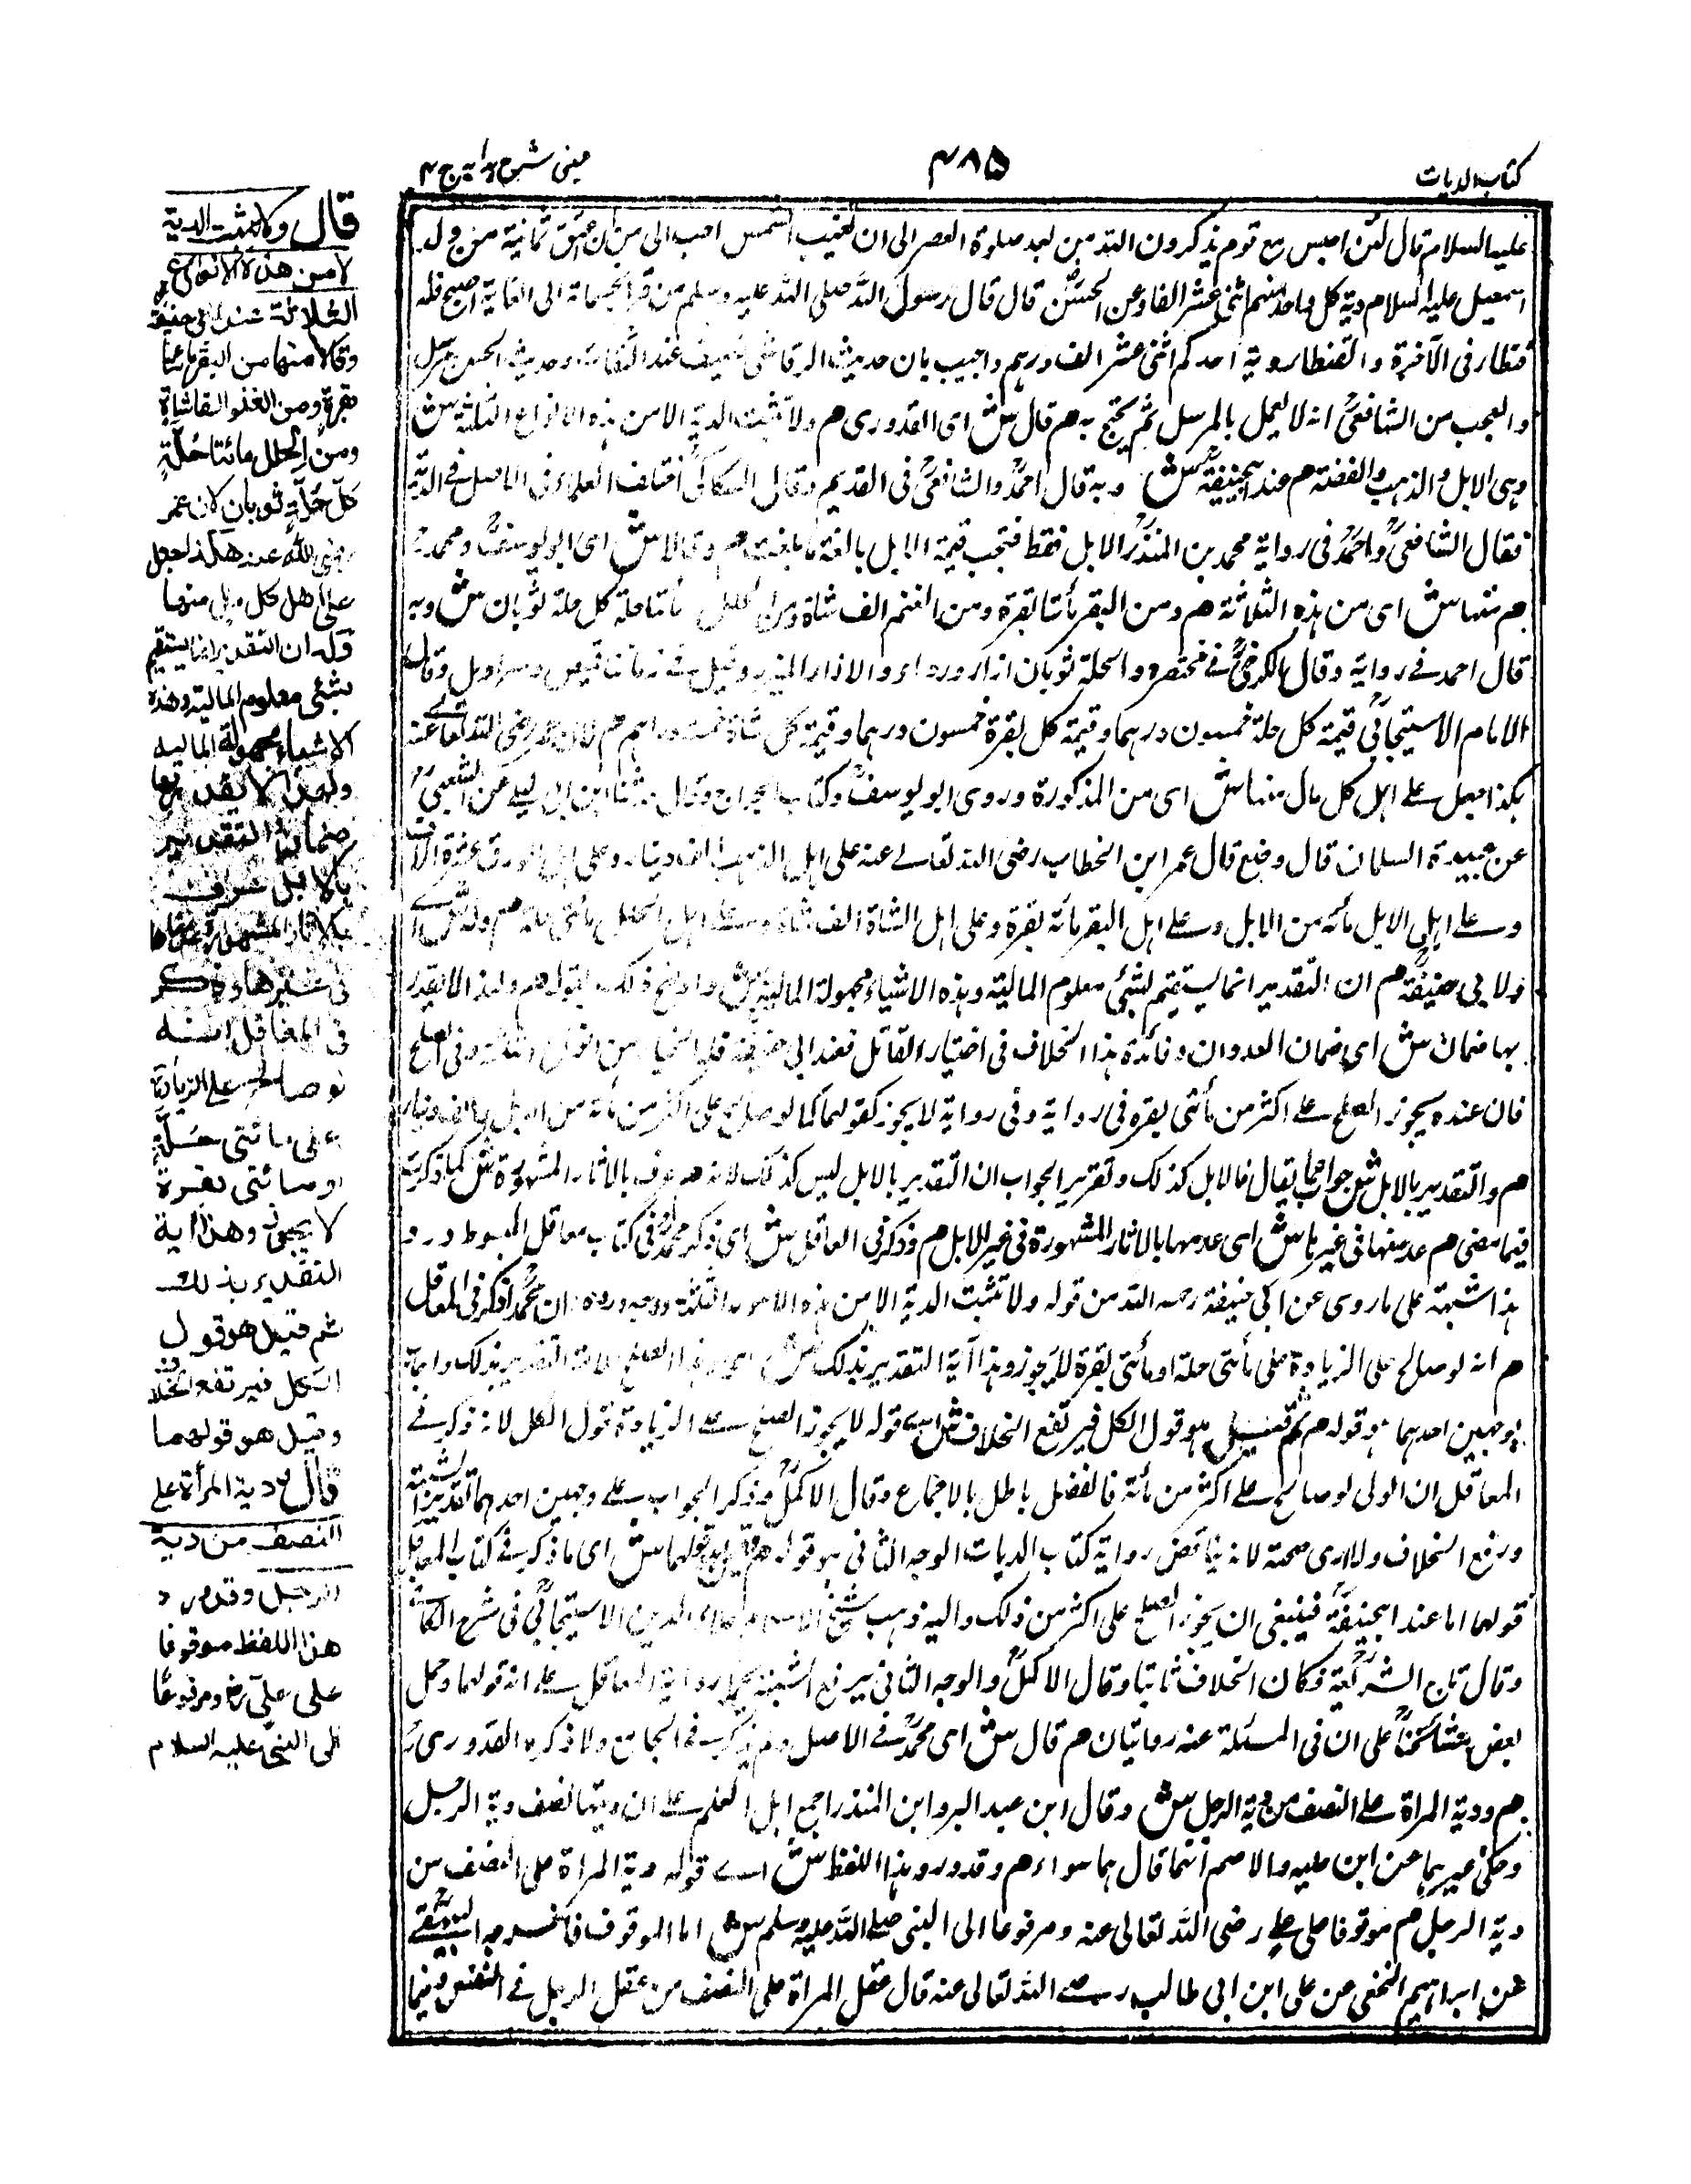 كتاب الديات
٤٨٥
عينى شرح هدايه ج ٤
عليه السلام قال لئن اجلس مع قوم يذكرون الله من بعد صلوة العصر الى ان تغيب الشمس احب الى من ان اعتق ثمانية من ولد
اسمعيل عليه السلام دية كل واحد منهم اثنى عشر الفا وعن الحسن قال قال رسول الله صلى الله عليه وسلم من قرأ خمسمائة الى الغاية اصبح وله
قنطار فى الآخرة والقنطار دية احدكم اثنى عشر الف درهم واجيب بان حديث الرقاشى ضعيف عند الثقات وحديث الحسن مرسل
والعجب من الشافعى انه لا يعمل بالمرسل ثم يحتج به هم قال ش اى القدورى هم ولا تثبت الدية الا من هذه الانواع الثلثة ش
وهى الابل والذهب والفضة هم عند ابيحنيفة ش وبه قال احمد والشافعى فى القديم وقال الكاكى اختلف العلماء فى الاصل فى الدية
فقال الشافعى واحمد فى رواية محمد بن المنذر الابل فقط فتجب قيمة الابل بالغة ما بلغت هم وقالا ش اى ابو يوسف ومحمد
هم منها ش اى من هذه الثلاثة هم ومن البقر مأتا بقرة ومن الغنم الف شاة ومن الحلل مأتا حلة كل حلة ثوبان ش وبه
قال احمد فى رواية وقال الكرخى فى مختصره والحلة ثوبان ازار ورداء والازار المئزر وقيل فى زماننا قميص وسراويل وقال
الامام الاسبيجابى قيمة كل حلة خمسون درهما وقيمة كل بقرة خمسون درهما وقيمة كل شاة خمسة دراهم هم لان عمر رضى الله تعالى عنه
هكذا جعل على اهل كل مال منها ش اى من المذكورة وروى ابو يوسف فى كتاب الخراج وقال حدثنا ابن ابى ليلى عن الشعبى
عن عبيدة السلمان قال وضع قال عمر ابن الخطاب رضى الله تعالى عنه على اهل الذهب الف دينار وعلى اهل الورق عشرة الاف
وعلى اهل الابل مأئة من الابل وعلى اهل البقر مأئة بقرة وعلى اهل الشاة الف شاة وعلى اهل الحلل مأتى حلة هم وله ش اى
ولابى حنيفة هم ان التقدير انما يستقيم بشيئ معلوم المالية وهذه الاشياء مجهولة المالية ش واوضح ذلك بقوله هم ولهذا لا يقدر
بها ضمان ش اى ضمان العدوان وفائدة هذا الخلاف فى اختيار القاتل فعند ابى حنيفة فله الخيار من انواع الثلثة وفى الصلح
فان عنده يجوز الصلح على اكثر من مأتى بقرة فى رواية وفى رواية لا يجوز كقولهما كما لو صالح على اكثر من مائة من الابل او الف دينار
هم والتقدير بالابل ش جواب عما يقال فالابل كذلك وتقرير الجواب ان التقدير بالابل ليس كذلك لانه عرف بالاثار المشهورة ش كما ذكرت
فيما مضى هم عدمنها فى غيرها ش اى عدمها بالاثار المشهورة فى غير الابل هم وذكر فى المعاقل ش اى ذكر محمد فى كتاب معاقل المبسوط ورود
هذا شبهة على ما روى عن ابى حنيفة رحمه الله من قوله ولا تثبت الدية الا من هذه الاموال الثلثة ووجه وروده ان محمدا ذكر فى المعاقل
هم انه لو صالح على الزيادة على مأتى حلة او مأتى بقرة لا يجوز وهذا آية التقدير بذلك ش اى وهذا الصلح علامة التقدير بذلك واجاب
بوجهين احدهما هو قوله هم ثم قيل هو قول الكل فيرتفع الخلاف ش اى قوله لا يجوز الصلح على الزيادة قول الكل لانه ذكر فى
المعاقل ان الولى لو صالح على اكثر من مأئة فالفضل باطل بالاجماع وقال الاكمل وذكر الجواب على وجهين احدهما تقدير الشبهة
ورفع الخلاف ولا ارى صحته لانه يناقض رواية كتاب الديات الوجه الثانى هو قوله هم وقيل هو قولهما ش اى ما ذكر فى كتاب المعاقل
قولهما اما عند ابيحنيفة فينبغى ان يجوز الصلح على اكثر من ذلك واليه ذهب شيخ الاسلام علاء الدين الاسبيجابى فى شرح الكافى
وقال تاج الشريعة فكان الخلاف ثابتا وقال الاكمل والوجه الثانى يرفع الشبهة بحمل رواية المعاقل على انه قولهما وحمل
بعض مشائخنا على ان فى المسئلة عنه روايتان هم قال ش اى محمد فى الاصل ولم يذكر فى الجامع ولا ذكره القدورى
هم ودية المراة على النصف من دية الرجل ش وقال ابن عبد البر وابن المنذر اجمع اهل العلم على ان ديتها نصف دية الرجل
وحكى غيرهما عن ابن علية والاصم انهما قال هما سواء هم وقد ورد هذا اللفظ ش اى قوله دية المراة على النصف من
دية الرجل هم موقوفا على على رضى الله تعالى عنه ومرفوعا الى النبى صلى الله عليه وسلم ش اما الموقوف فاخرجه البيهقى
عن ابراهيم النخعى عن على ابن ابى طالب رضى الله تعالى عنه قال عقل المراة على النصف من عقل الرجل فى النفس وفيما
قال ولا تثبت الدية
الا من هذه الانواع
الثلاثة عند ابى حنيفة
وقالا منها من البقر مائتا
بقرة ومن الغنم الفا شاة
ومن الحلل مائتا حلة
كل حلة ثوبان لان عمر
رضى الله عنه هكذا جعل
على اهل كل مال منها
وله ان التقدير انما يستقيم
بشئ معلوم المالية وهذه
الاشياء مجهولة المالية
ولهذا لا يقدر بها
ضمان والتقدير
بالابل عرف
بالاثار المشهورة عدمناها
فى غيرها وذكر
فى المعاقل انه
لو صالح على الزيادة
على مائتى حلة
او مائتى بقرة
لا يجوز وهذا اية
التقدير بذلك
ثم قيل هو قول
الكل فيرتفع الخلاف
وقيل هو قولهما
قال ودية المرأة على
النصف من دية
الرجل وقد ورد
هذا اللفظ موقوفا
على على رض ومرفوعا
الى النبى عليه السلام